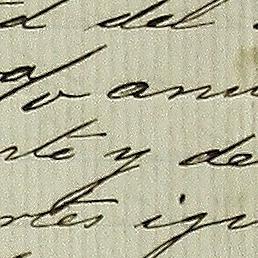 d del
anu
rte y de
rtes igu